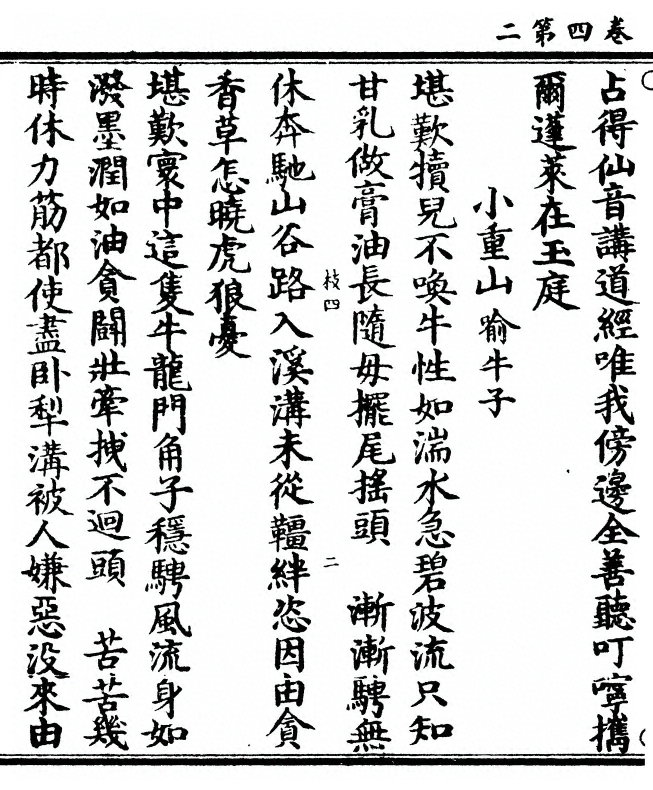 卷四第二
占得仙音講道經唯我傍邊全善聽叮嚀攜
爾蓬萊在玉庭
小重山 喻牛子
堪歎犢兒不喚牛性如湍水急碧波流只知
甘乳做膏油長隨母擺尾搖頭 漸漸騁無
枝四 二
休奔馳山谷路入溪溝未從韁絆恣因由貪
香草怎曉虎狼憂
堪歎寰中這隻牛龍門角子穩騁風流身如
潑墨潤如油貪鬭壯牽拽不迴頭 苦苦幾
時休力筋都使盡卧犁溝被人嫌惡没來由